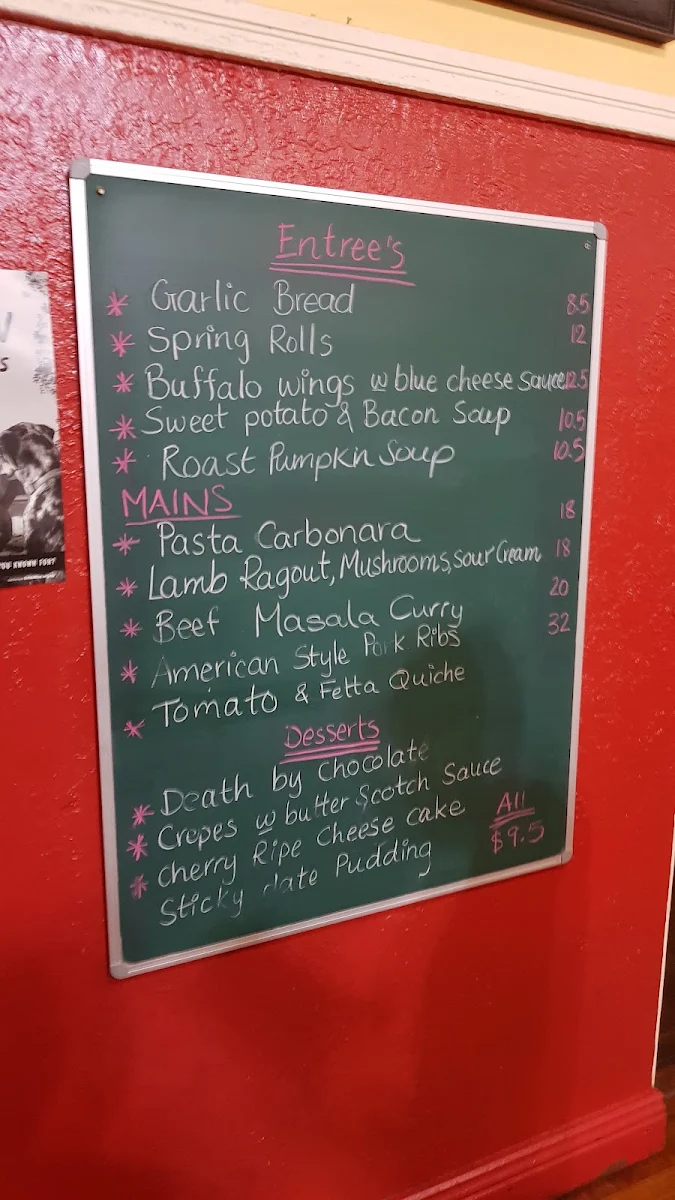 Entree's
* Garlic Bread 8.5
* Spring Rolls 12
* Buffalo wings w blue cheese sauce 12.5
* Sweet potato & Bacon Soup 10.5
* Roast Pumpkin Soup 10.5
MAINS
* Pasta Carbonara 18
* Lamb Ragout, Mushrooms, sour Cream 18
* Beef Masala Curry 20
* American Style Pork Ribs 32
* Tomato & Fetta Quiche
Desserts
* Death by Chocolate
* Crepes w butter Scotch Sauce
* Cherry Ripe Cheese cake
Sticky date Pudding
All
$9.5